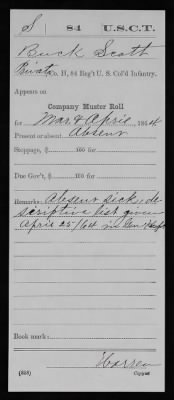 S | 84 | U.S.C.T.
Buck Scott
Private, Co. H, 84 Reg't U. S. Col'd Infantry.
Appears on
Company Muster Roll
for Mar & April, 1864
Present or absent Absent
Stoppage, $ 100 for
Due Gov't, $ 100 for
Remarks: Absent sick, de
scriptive list given
April 25/64 in Gen Hospt
Book mark:
(358)
Copyist.